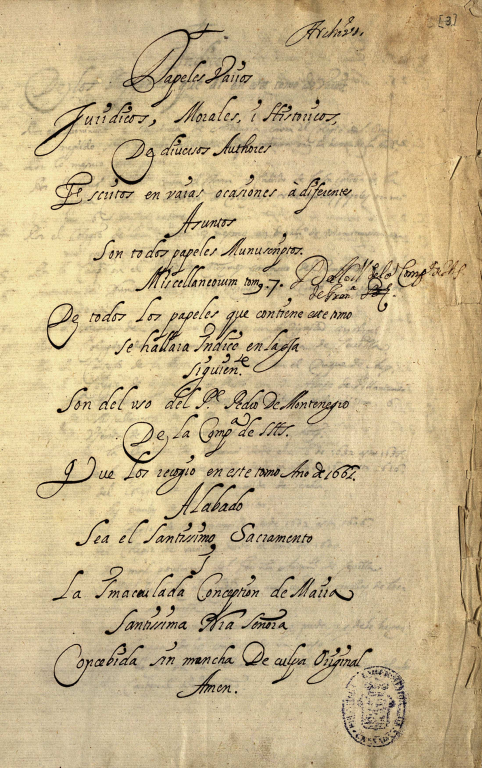 Archivo.
[3]
Papeles Varios
Juridicos, Morales, i Historicos,
De diuersos Authores
Escritos en varias ocasiones a diferentes
Asuntos
Son todos papeles Manuscriptos.
Miscellaneorum tom. 7.
De la Compª de Jhs.
De todos los papeles que contiene este tomo
se hallara Indice en la oja
siguien.te
Son del vso del P.e Pedro De Montenegro
De la Compª de Jhs.
Que los recogio en este tomo Año de 1662.
Alabado
Sea el Santissimo Sacramento
I
La Immaculada Conception de Maria
Santissima Nra Señora
Concebida sin mancha De culpa Original
Amen.